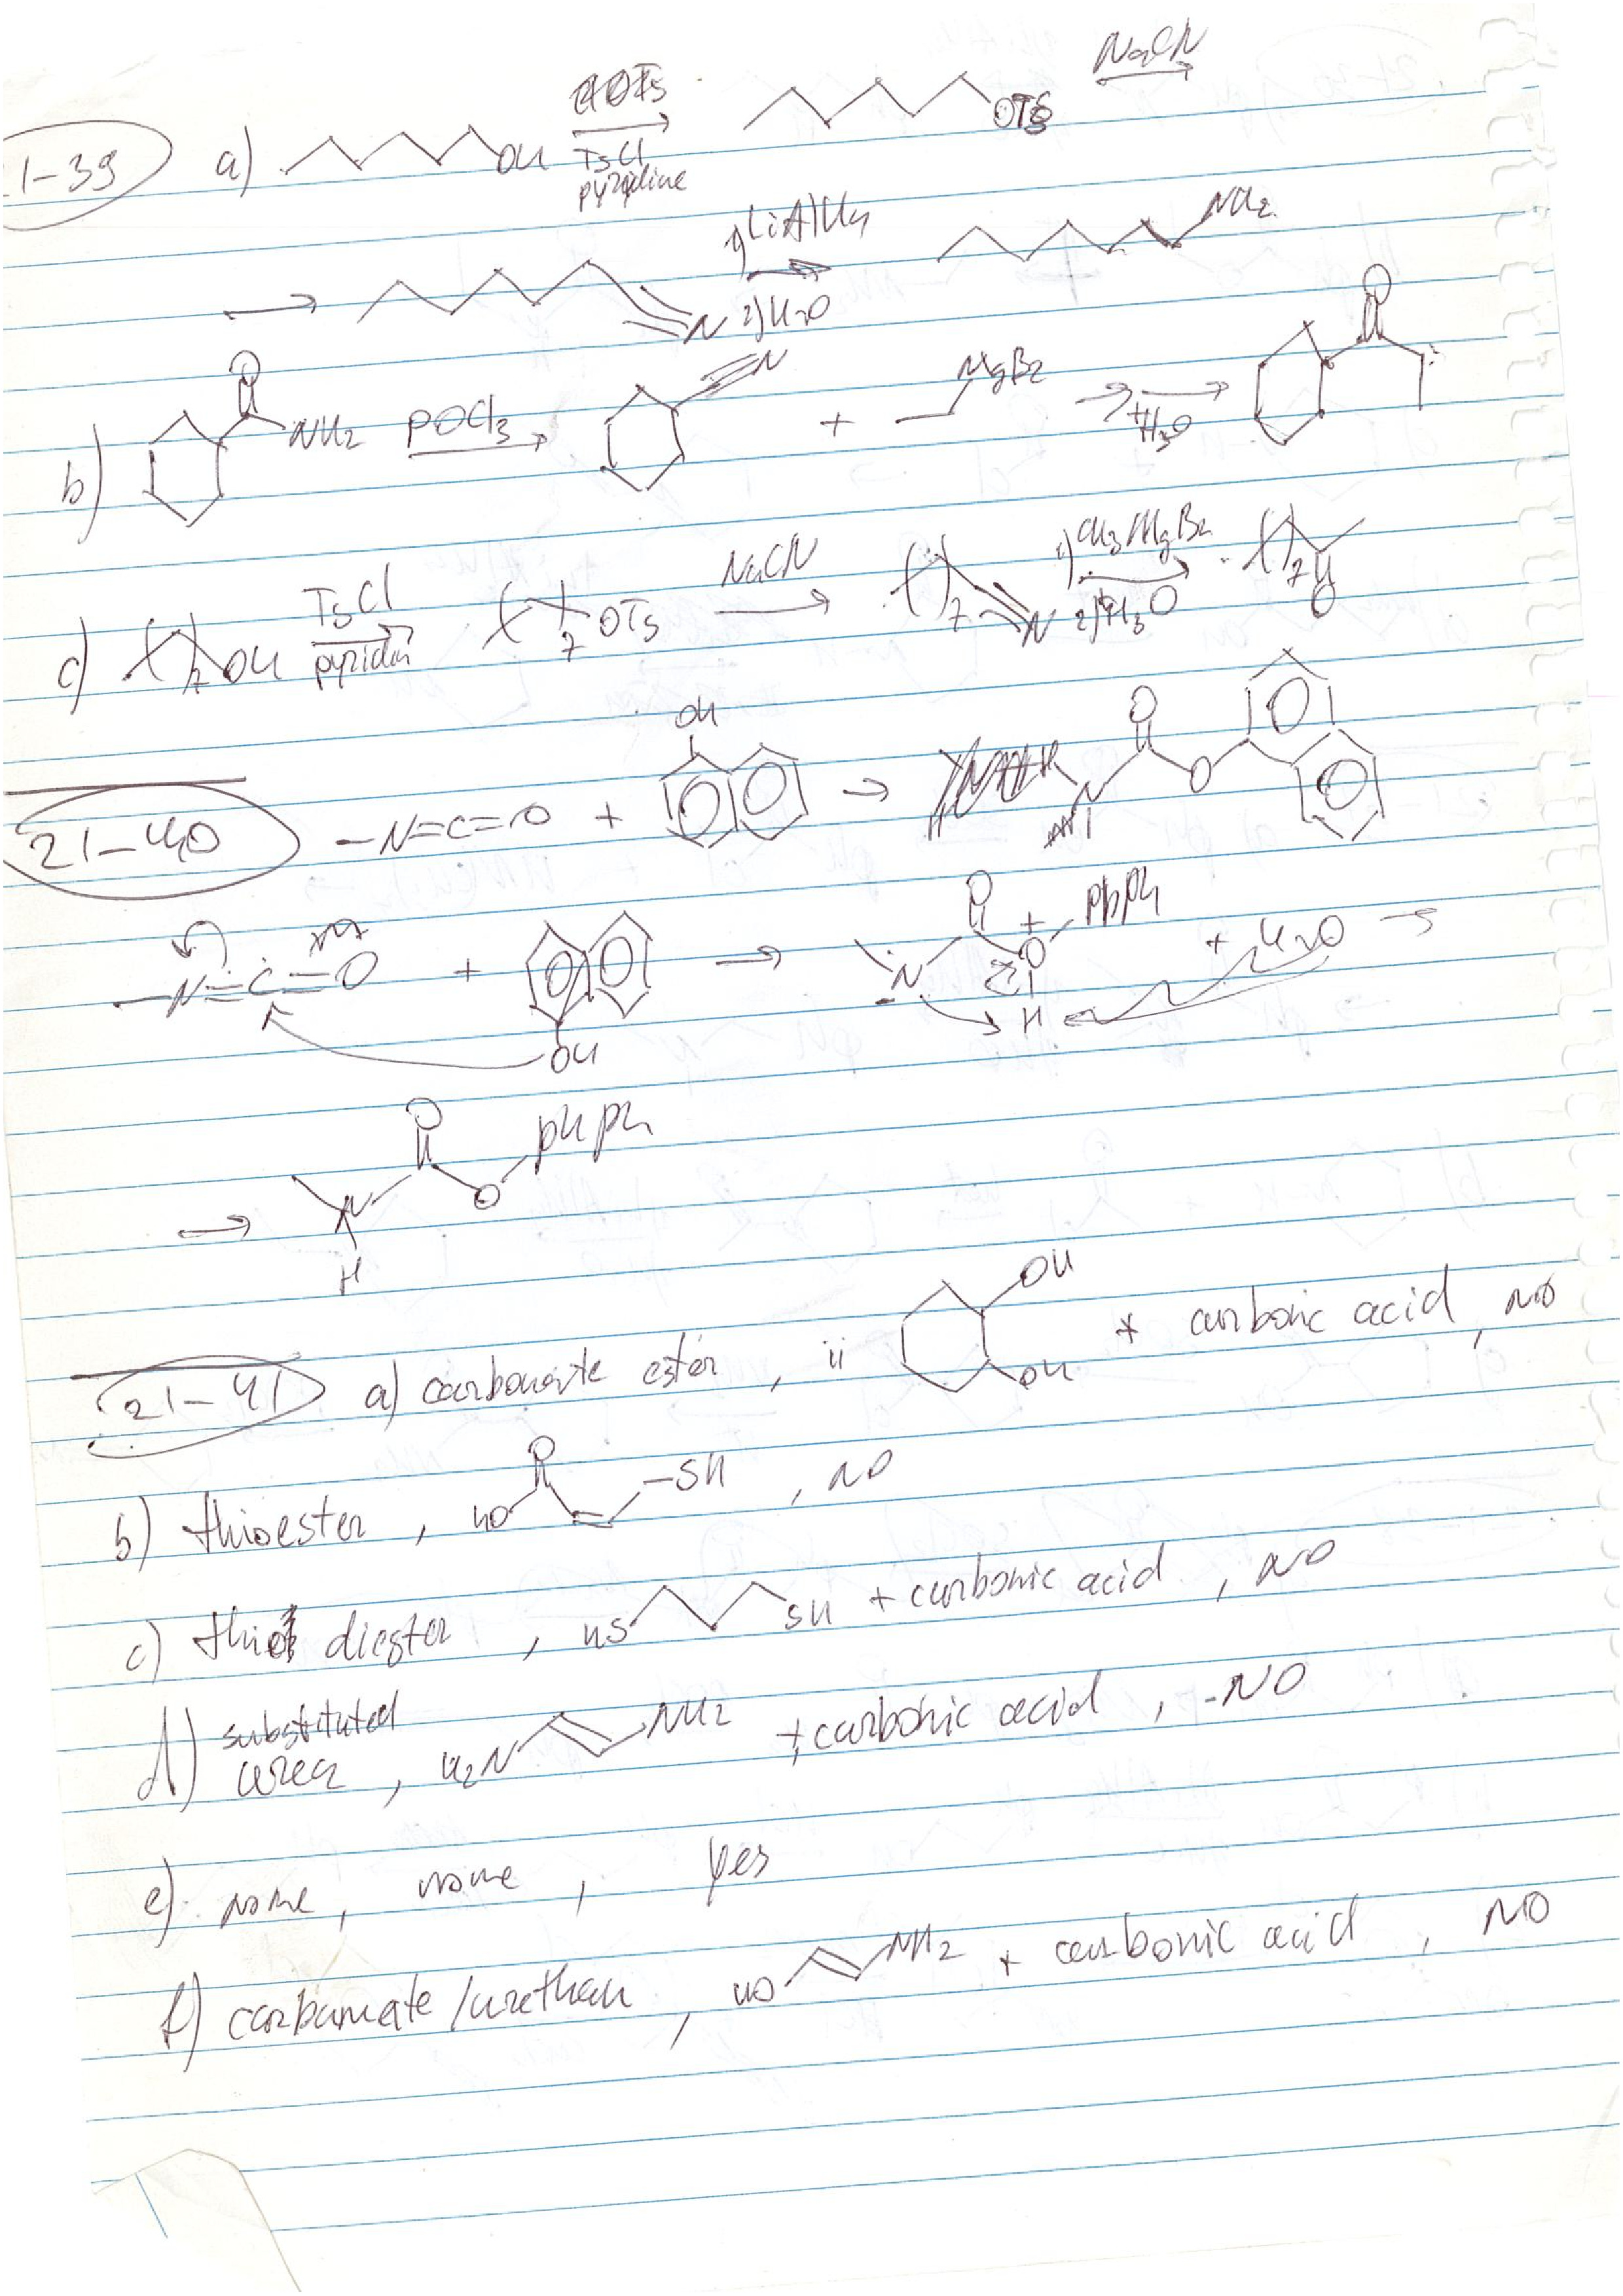 NaCN
1-39 a) OH TsCl pyridine OTs
N 1) LiAlH4 2) H2O NH2
b) O NH2 POCl3 N + MgBr H3O+ O
c) ( )7 OH TsCl pyridin ( )7 OTs NaCN ( )7 N 1) CH3MgBr 2) H3O+ ( )7 O
21-40 -N=C=O + OH → N O O
-N=C=O + OH → O N O + PhPh H + H2O →
→ O N H O PhPh
21-41 a) carbonate ester, ii OH OH + carbonic acid, NO
b) thioester, HO O -SH, NO
c) thio diester, HS SH + carbonic acid, NO
d) substituted urea, H2N NH2 + carbonic acid, -NO
e) none, none, yes
f) carbamate/urethan, HO NH2 + carbonic acid, NO